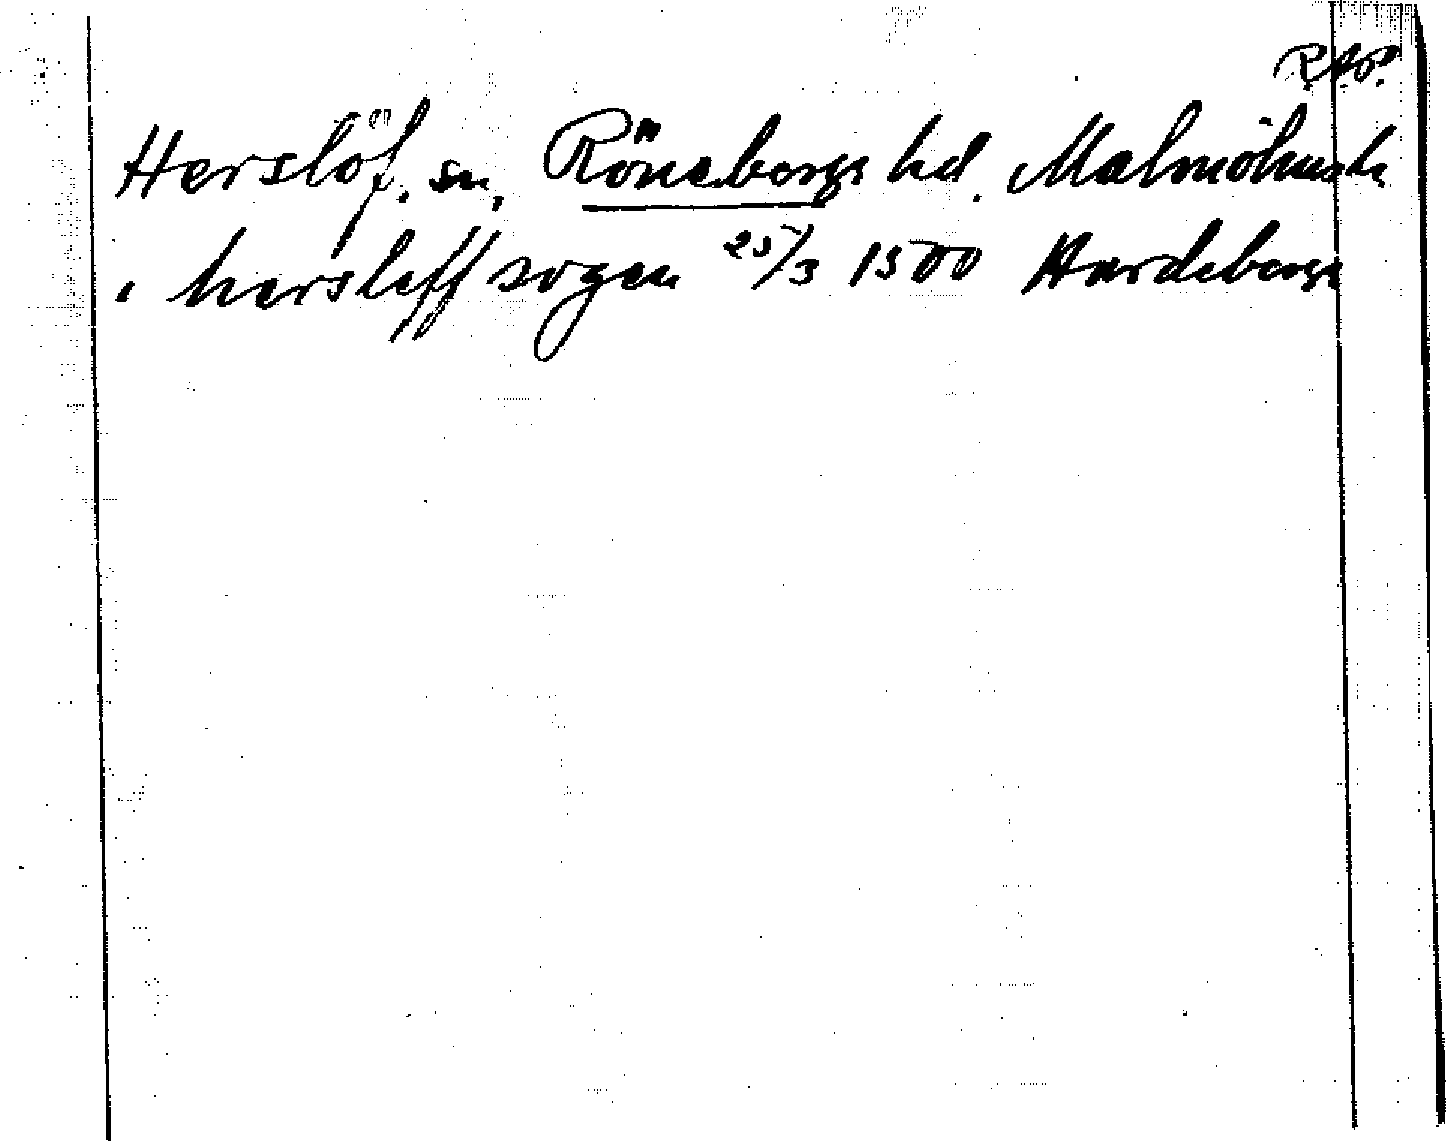 RAP.
Herslöf, sn, Rönebergs hd. Malmöhus l.
i hersleff sogen 25/3 1500 Hardeberga